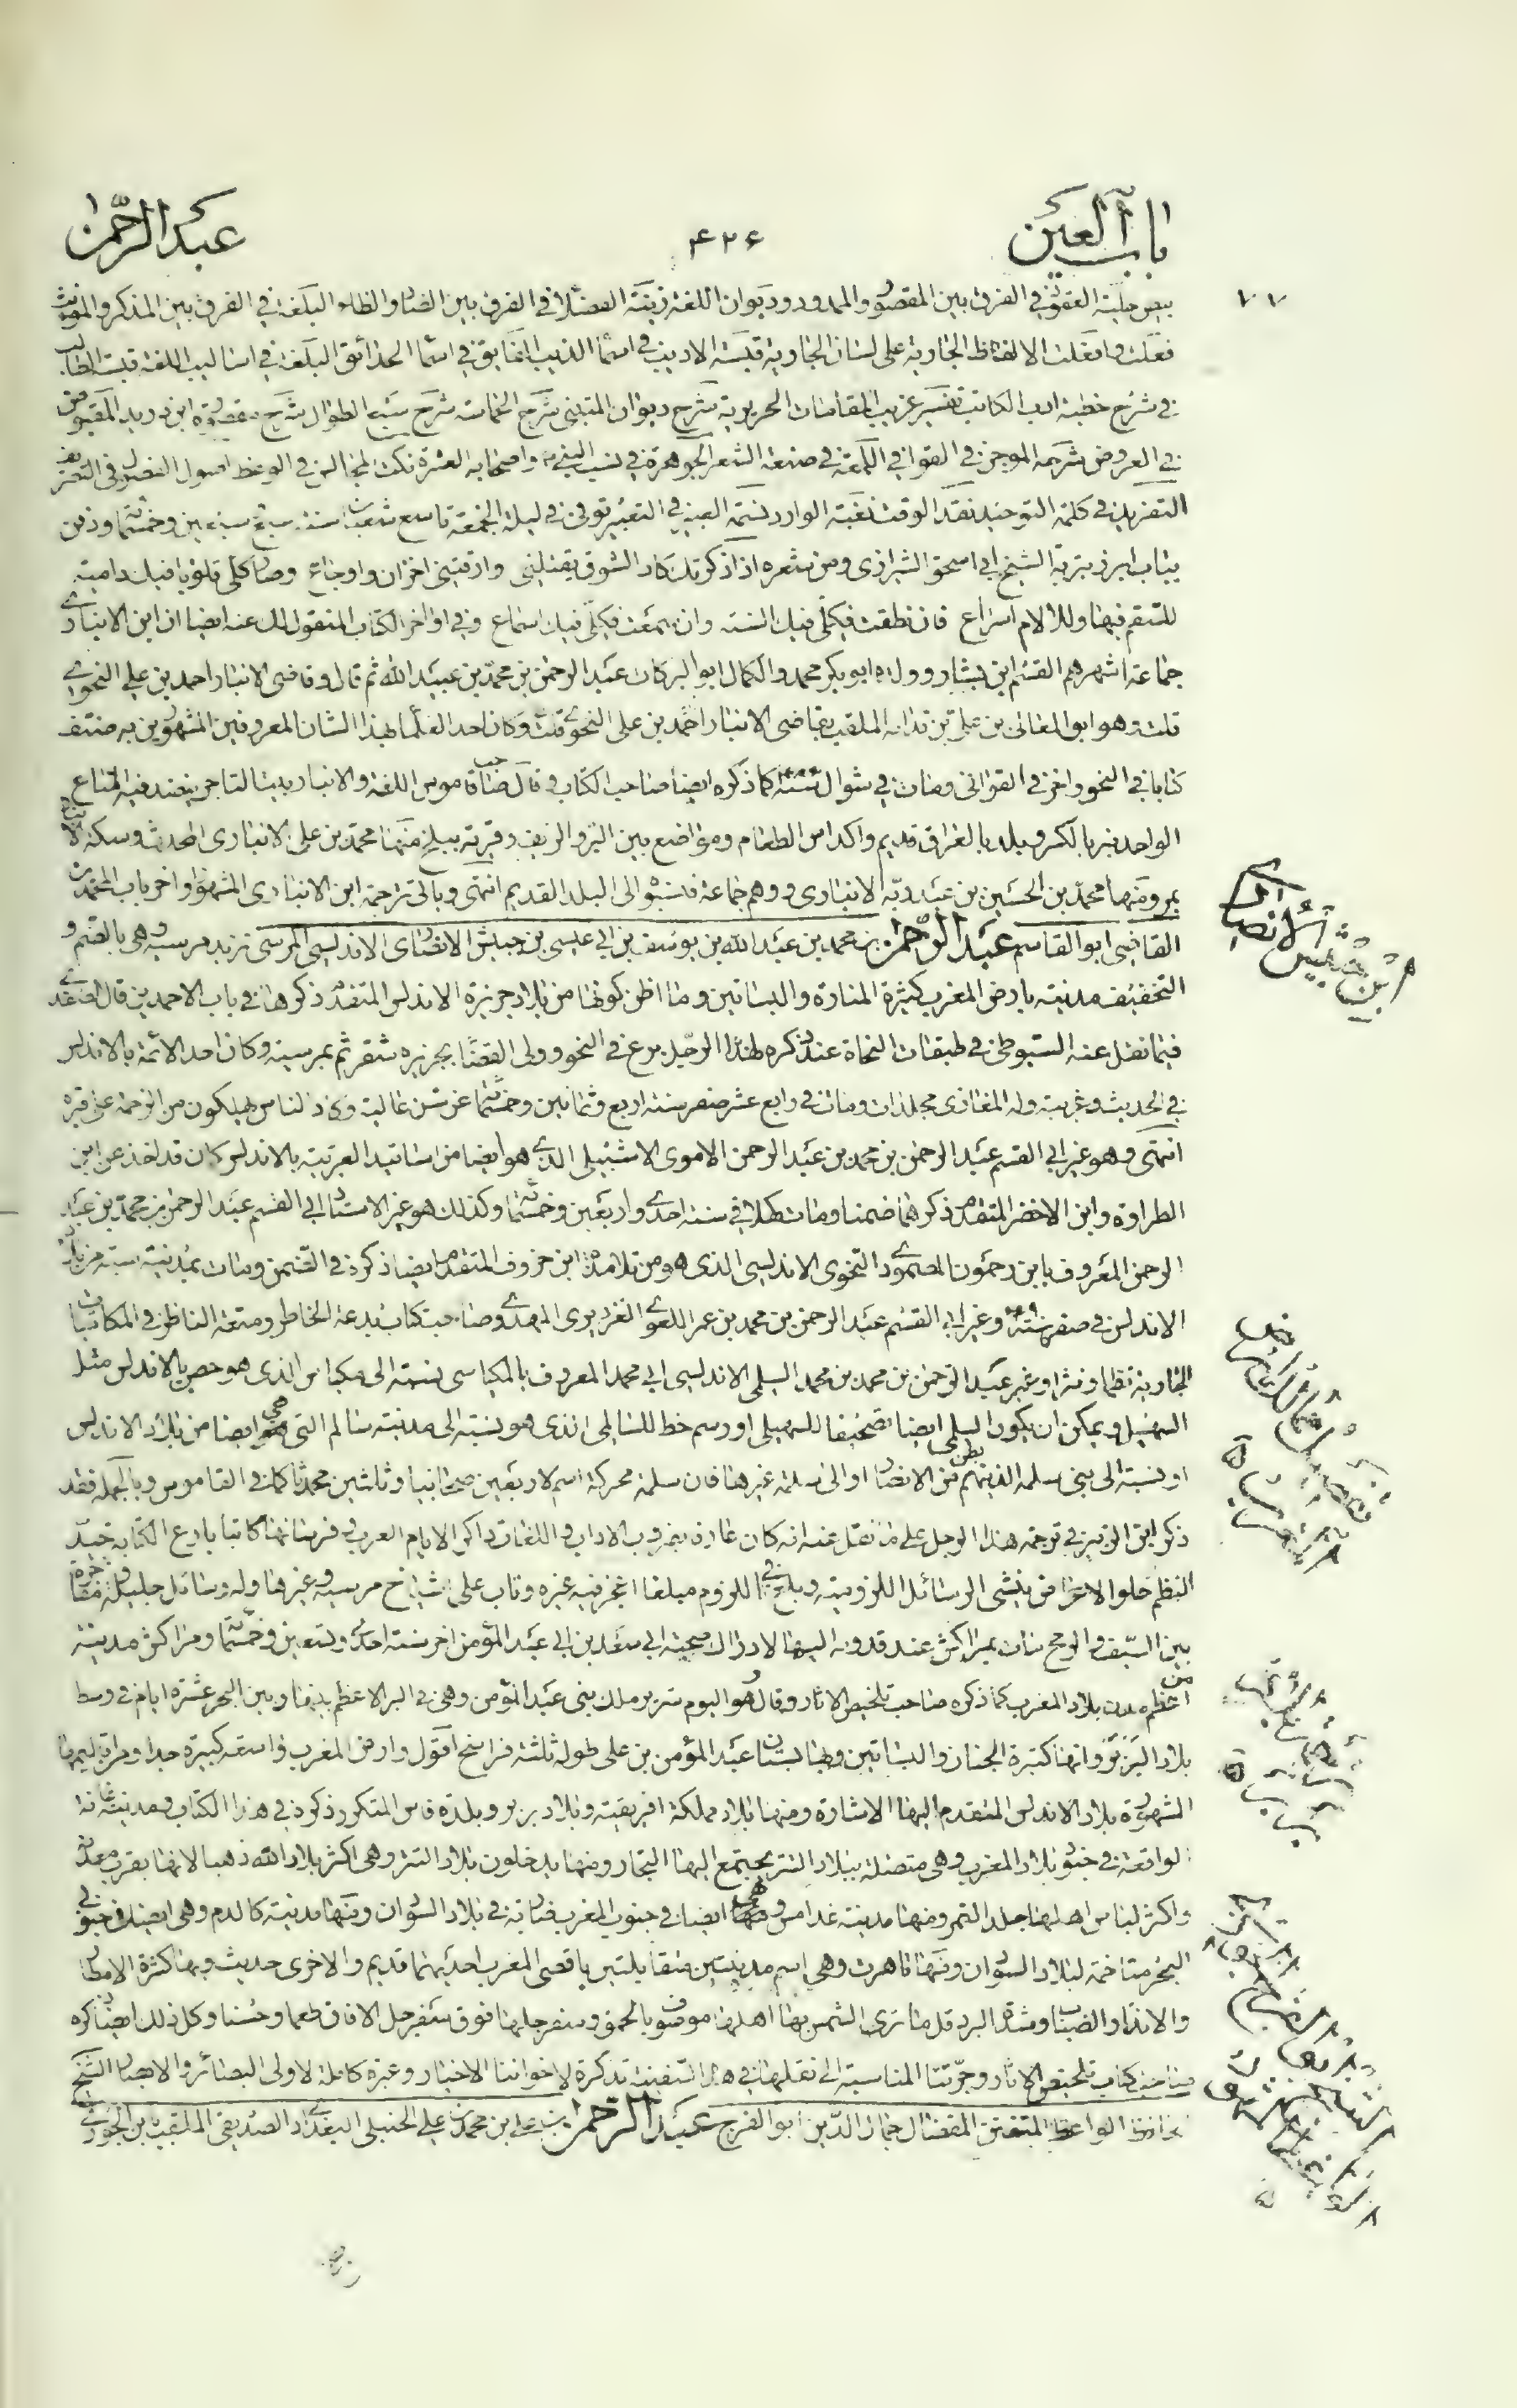 باب العين
۴۲۶
عبد الرحمن
حلية العقود في الفرق بين المقصور والممدود وديوان اللغة زينة الفضلا في الفرق بين الضاد والظاء البلغة في الفرق بين المذكر والمونث
فعلت وافعلت الالفاظ الجارية على لسان الجارية قبسة الاديب في اسما الذيب الفايق في اسما الحذائق البلغة في اساليب اللغة قبسة الطالب
في شرح خطبة ادب الكاتب تفسير غريب المقامات الحريرية شرح ديوان المتنبي شرح الحماسة شرح سبع الطوال شرح مقصورة ابن دريد المقبوض
في العروض شرحه الموجز في القوافي اللمعة في صنعة الشعر الجوهرة في نسب النبي واصحابه العشرة نكت المجالس في الوعظ اصول الفصول في التصوف
التفريد في كلمة التوحيد نقد الوقت نغبة الوارد نسمة العبير في التعبير توفي في ليلة الجمعة تاسع شعبان سنة سبع سبعين وخمسمائة ودفن
بباب ابرز بتربة الشيخ ابي اسحق الشيرازي ومن شعره اذا ذكرتك كاد الشوق يقتلني وارقتني احزان واوجاع وصار كلي قلوبا فيك دامية
للسقم فيها وللالام اسراع فان نطقت فكلي فيك السنة وان سمعت فكلي فيك اسماع وفي اواخر الكتاب المنقول لك عنه ايضا ان ابن الانباري
جماعة اشهرهم القسم ابن بشار وولده ابو بكر محمد والكمال ابو البركات عبد الرحمن بن محمد بن عبيد الله ثم قال وقاضي الانبار احمد بن علي النحوي
قلت وهو ابو المعالي بن علي بن قدامة الملقب بقاضي الانبار احمد بن علي النحوي قلت وكان احد العلما بهذا الشان المعروفين المشهورين به صنف
كتابا في النحو واخر في القوافي ومات في شوال سنة كما ذكره ايضا صاحب الكتاب وقال صاحب قاموس اللغة والانبار بيت التاجر ينضد فيه المتاع
الواحد نبر بالكسر وبلد بالعراق قديم واكداس الطعام ومواضع بين البر والريف وقرية ببلخ منها محمد بن علي الانباري المحدث وسكة الانبار
بمرو منها محمد بن الحسين بن عبدويه الانباري ووهم جماعة فنسبوه الى البلد القديم انتهى وياتي ترجمة ابن الانباري المشهور اواخر باب المحمدين
القاضي ابو القاسم عبد الرحمن بن محمد بن عبد الله بن يوسف بن ابي عيسى بن حبيش الانصاري الاندلسي المرسي نزيد مرسيه وهي بالضم و
التخفيف مدينة بارض المغرب كثيرة المنارة والبساتين وما اظن كونها من بلاد جزيرة الاندلس المتقدم ذكرها في باب الاحمدين قال الصفدي
فيما نقل عنه السيوطي في طبقات النحاة عند ذكره لهذا الرجل برع في النحو وولي القضا بجزيره شقر ثم بمرسية وكان احد الائمة بالاندلس
في الحديث وغريبه وله المغازي مجلدات ومات في رابع عشر صفر سنة اربع وثمانين وخمسمائة عن سن عالية وكاد الناس يهلكون من الزحمة على قبره
انتهى وهو غير ابي القسم عبد الرحمن بن محمد بن عبد الرحمن الاموي الاشبيلي الذي هو ايضا من اساتيد العربية بالاندلس كان قد اخذ عن ابن
الطراوة وابن الاخضر المتقدم ذكرهما ضمنا ومات في سنة احدى واربعين وخمسمائة وكذلك هو غير الاستاد ابي القسم عبد الرحمن بن محمد بن عبد
الرحمن المعروف بابن رحمون المصمودي النحوي الاندلسي الذي هو من تلامذة ابن خروف المتقدم ايضا ذكره في الضمن ومات بمدينة سبتة من بلاد
الاندلس في صفر سنة وغير ابي القسم عبد الرحمن بن محمد بن عمر اللغوي المهدوي صاحب كتاب بدعة الخاطر ومتعة الناظر في المكاتبات
الجارية نظما ونثرا وغير عبد الرحمن بن محمد بن محمد السلمي الاندلسي ابي محمد المعروف بالمكناسي نسبة الى مكناس الذي هو حصن بالاندلس مثل
السهيل ويمكن ان يكون السلمي ايضا تصحيفا للسهيلي او رسم خط للسالمي الذي هو نسبته الى مدينة سالم التي هي ايضا من بلاد الاندلس
او نسبة الى بني سلمة الذين هم بطن من الانصار او الى سلمة غيرها فان سلمة محركة اسم لاربعين صحابيا وثلثين محدثا كما في القاموس وبالجملة فقد
ذكر ابن الزبير في ترجمة هذا الرجل على ما نقل عنه انه كان عارفا بضروب الاداب واللغات ذاكرا لايام العرب وفرسانها كاتبا بارع الكتابة جيد
النظم حلو الاغراض ينشى الرسائل اللزومية وبلغ في اللزوم مبلغا اعجز فيه غيره وتاب على اشياخ مرسيه وغيرها وله رسائل جليلة مفاخرة
بين السيف والرمح مات بمراكش عند قدومه اليها لادراك صحبة ابي سعد بن ابي عبد المؤمن اخر سنة احدى وتسعين وخمسمائة ومراكش مدينة
من اعظم مدن بلاد المغرب كما ذكره صاحب تلخيص الاثار وقال هو اليوم سرير ملك بني عبد المؤمن وهي في البر الاعظم بينها وبين البحر عشرة ايام في وسط
بلاد البربر وانها كثيرة الجنان والبساتين وبها بستان عبد المؤمن بن علي طوله ثلثة فراسخ اقول وارض المغرب واسعة كبيرة جدا ومن اقاليمها
المشهورة بلاد الاندلس المتقدم اليها الاشارة ومنها بلاد مملكة افريقية وبلاد بربر وبلدة فاس المتكرر ذكره في هذا الكتاب ومدينة غانة
الواقعة في جنوب بلاد المغرب وهي متصلة ببلاد التبر يجتمع اليها التجار ومنها يدخلون بلاد التبر وهي اكثر بلاد الله ذهبا لانها بقرب معدنه
واكثر لباس اهلها جلد النمر ومنها مدينة غدامس وهي ايضا في جنوب المغرب ضاربة في بلاد السودان ومنها مدينة كالدم وهي ايضا في جنوبي
البحر متاخمة لبلاد السودان ومنها تاهرت وهي اسم مدينتين متقابلتين باقصى المغرب احديهما قديم والاخرى حديث وبها كثرة الامطار
والانداء والضباب وشدة البرد قل ما ترى الشمس بها اهلها موصوفون بالحمق وسفرجلها فوق سفرجل الافاق طعما وحسنا وكل ذلك ايضا ذكره
صاحب كتاب تلخيص الاثار وجرتنا المناسبة الى نقلها في هذا السفينة تذكرة لاخواننا الاخيار وعبرة كاملة لاولي البصائر والابصار الشيخ
الحافظ الواعظ المتفنن المفضال جمال الدين ابو الفرج عبد الرحمن بن علي بن محمد بن علي الحنبلي البغدادي الصديقي الملقب بابن الجوزي
ابن حبيش الانصاري